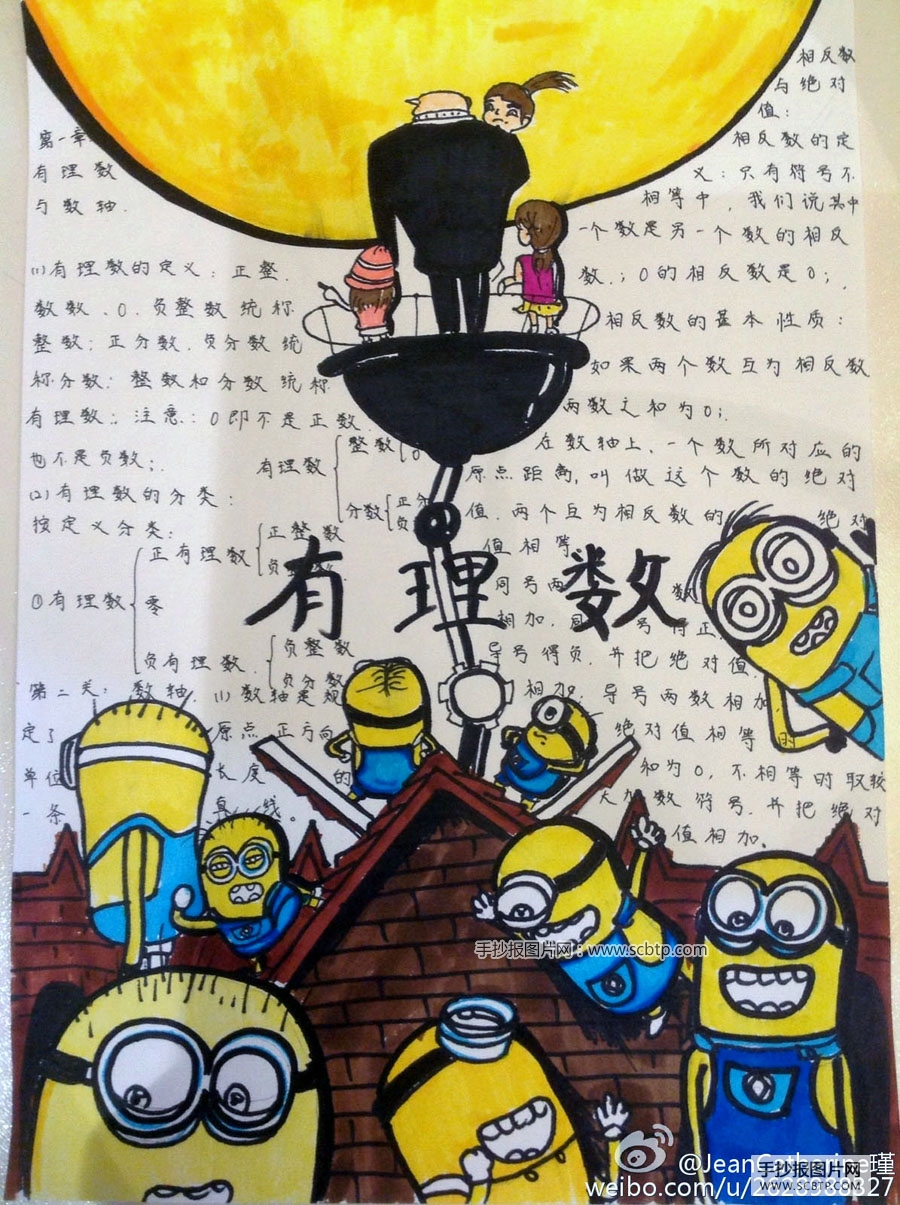 第一章
有理数
与数轴.
(1)有理数的定义：正整
数数、0、负整数统称
整数；正分数、负分数统
称分数；整数和分数统称
有理数；注意：0即不是正数，
也不是负数；
(2)有理数的分类：
按定义分类：
①有理数
正有理数
正整数
零
负有理数
负整数
负分数
有理数
整数
0
分数
正分
负
第二类：数轴 (1)数轴是规
定了
原点正方向
单位
长度
的
一条
直线。
有理数
相反数
与绝对
值：
相反数的定
义：只有符号不
相等中，我们说其中
一个数是另一个数的相反
数；0的相反数是0；
相反数的基本性质：
如果两个数互为相反数
两数之和为0；
在数轴上，一个数所对应的
原点距离，叫做这个数的绝对
值，两个互为相反数的
绝对
值相等
同号两
数
相加，同
号得正
导号得负，并把绝对值
相加；导号两数相加
绝对值相等
时
和为0，不相等时取较
大加数符号，并把绝对
值相加。
手抄报图片网：www.scbtp.com
@JeanCatherine瑾
手抄报图片网
WWW.SCBTP.COM